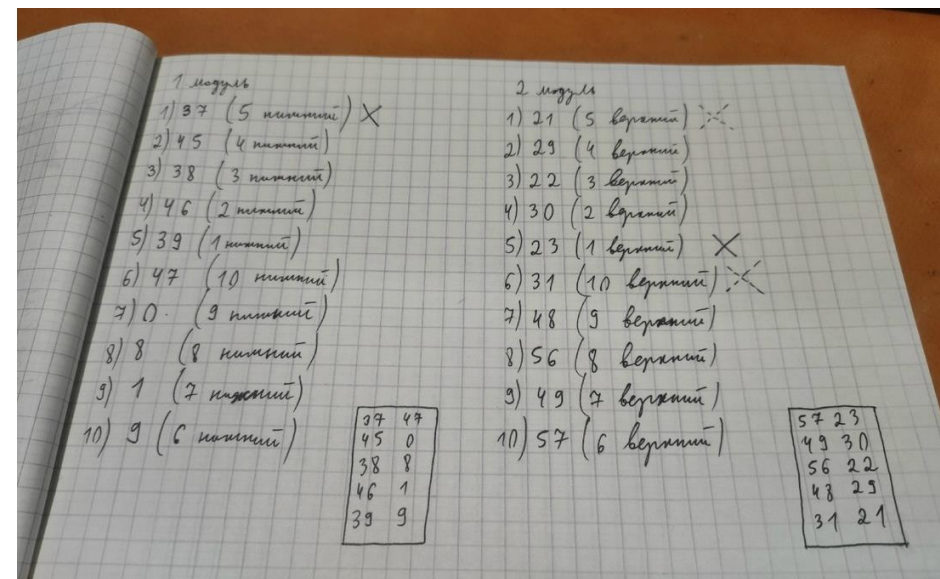 1 модуль
1) 37 (5 нижний) X
2) 45 (4 нижний)
3) 38 (3 нижний)
4) 46 (2 нижний)
5) 39 (1 нижний)
6) 47 (10 нижний)
7) 0. (9 нижний)
8) 8 (8 нижний)
9) 1 (7 нижний)
10) 9 (6 нижний)
37 47
45 0
38 8
46 1
39 9
2 модуль
1) 21 (5 верхний) X
2) 29 (4 верхний)
3) 22 (3 верхний)
4) 30 (2 верхний)
5) 23 (1 верхний) X
6) 31 (10 верхний) X
7) 48 (9 верхний)
8) 56 (8 верхний)
9) 49 (7 верхний)
10) 57 (6 верхний)
57 23
49 30
56 22
48 29
31 21